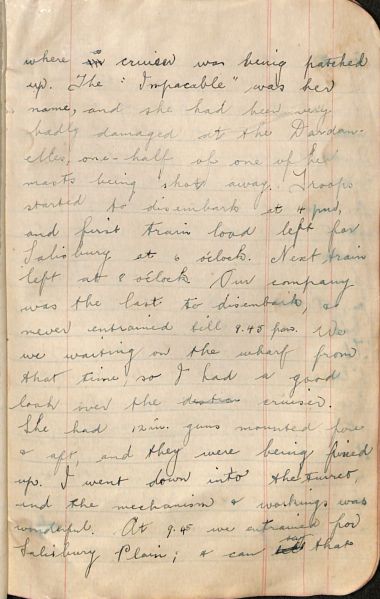 where a cruiser was being patched
up. The "Impacable" was her
name, and she had been very
badly damaged at the Dardan-
elles, one-half of one of her
masts being shot away. Troops
started to disembark at 4 pm,
and first train load left for
Salisbury at 6 o'clock. Next train
left at 8 o'clock. Our company
was the last to disembark, &
never entrained till 9.45 pm. We
we waiting on the wharf from
that time, so I had a good
look over the cruiser.
She had 12 in. guns mounted fore
& aft, and they were being fixed
up. I went down into the turret,
and the mechanism & workings was
wonderful. At 9.45 we entrained for
Salisbury Plain; & can that